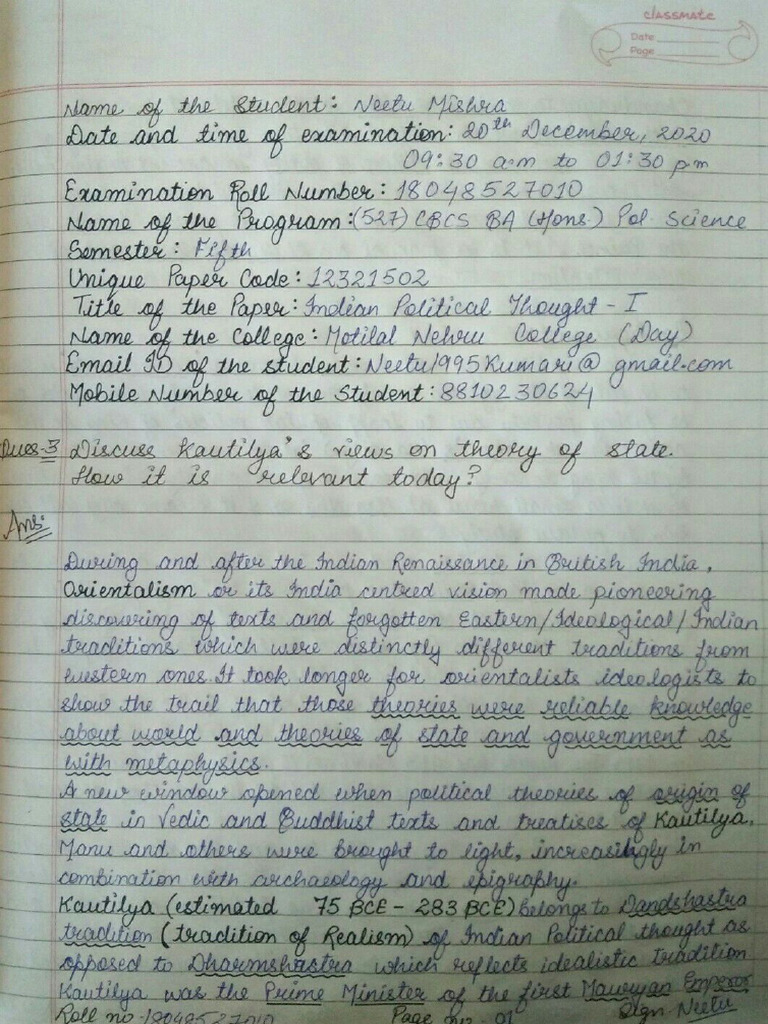 classmate
Date
Page
Name of the Student: Neetu Mishra
Date and time of examination: 20th December, 2020
09:30 a.m to 01:30 p.m
Examination Roll Number: 18048527010
Name of the Program: (527) CBCS BA (Hons.) Pol. Science
Semester: Fifth
Unique Paper Code: 12321502
Title of the Paper: Indian Political Thought - I
Name of the College: Motilal Nehru College (Day)
Email ID of the student: Neetu1995Kumari@gmail.com
Mobile Number of the Student: 8810230624
Ques-3 Discuss Kautilya's views on theory of state.
How it is relevant today?
Ans:
During and after the Indian Renaissance in British India,
Orientalism or its India centred vision made pioneering
discovering of texts and forgotten Eastern/Ideological/Indian
traditions which were distinctly different traditions from
western ones. It took longer for orientalists ideologists to
show the trail that those theories were reliable knowledge
about world and theories of state and government as
with metaphysics.
A new window opened when political theories of origin of
state in Vedic and Buddhist texts and treatises of Kautilya,
Manu and others were brought to light, increasingly in
combination with archaeology and epigraphy.
Kautilya (estimated 75 BCE - 283 BCE) belongs to Dandshastra
tradition (tradition of Realism) of Indian Political thought as
opposed to Dharmshastra which reflects idealistic tradition
Kautilya was the Prime Minister of the first Mauryan Emperor
Roll no - 18048527010 Page no - 01 Sign - Neetu